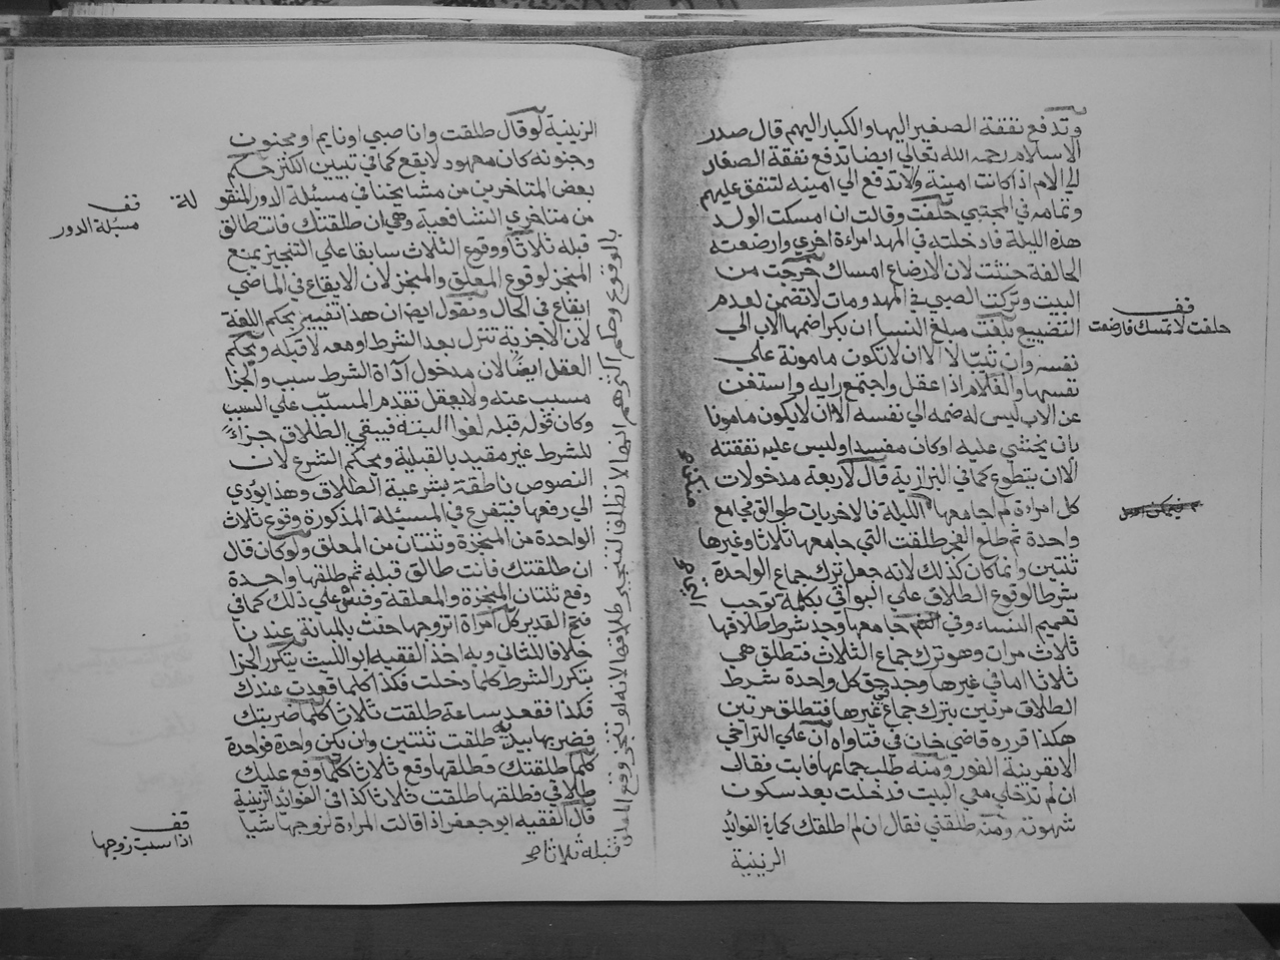 وتدفع نفقة الصغير اليها والكبار اليهم قال صدر
الاسلام رحمه الله تعالى ايضا تدفع نفقة الصغار
الي الام اذا كانت امينة ولا تدفع الي امينه لتنفق عليهم
وتمامه في المجتبي حلفت وقالت ان امسكت الولد
هذه الليلة فادخلته في المهد امراءة اخري وارضعته
الحالفة حنثت لان الارضاع امساك خرجت من
البيت وتركت الصبي في المهد ومات لا تضمن لعدم
التضييع بلغت مبلغ النساء ان بكرا ضمها الاب الي
نفسه وان ثيبا لا الا ان لا تكون مامونة علي
نفسها والغلام اذا عقل واجتمع رايه واستغني
عن الاب ليس له ضمه الي نفسه الا ان لا يكون مامونا
بان يختشي عليه او كان مفسدا وليس عليه نفقته
الا ان يتطوع كما في البزازية قال لاربعة مدخولات
كل امراءة لم اجامعها الليلة فالاخريات طوالق فجامع
واحدة ثم طلع الفجر طلقت التي جامعها ثلاثا وغيرها
ثنتين وانما كان كذلك لانه جعل ترك جماع الواحدة
شرطا لوقوع الطلاق علي البواقي بكلمة توجب
تعميم النساء وفي التي جامعها وجد شرط طلاقها
ثلاث مرات وهو ترك جماع الثلاث فتطلق هي
ثلاثا اما في غيرها وجد في حق كل واحدة شرط
الطلاق مرتين بترك جماع غيرها فتطلق مرتين
هكذا قرره قاضي خان في فتاواه ان علي التراخي
الا بقرينة الفور ومنه طلب جماعها فابت فقال
ان لم تدخلي معي البيت فدخلت بعد سكون
شهوته ومنه طلقني فقال ان لم اطلقك كما في الفوائد
الزينية
قف
حلفت لا تمسك فارضعت
الزينية لو قال طلقت وانا صبي او نايم او مجنون
وجنونه كان معهود لا يقع كما في تبيين الكنز حكم
بعض المتاخرين من مشايخنا في مسئلة الدور المنقو
لة
من متاخري الشافعية وهي ان طلقتك فانت طالق
قبله ثلاثا ووقوع الثلاث سابقا علي التنجيز يمنع
المنجز لوقوع المعلق والمنجز لان الايقاع في الماضي
ايقاع في الحال ونقول ايضا ان هذا تغيير بحكم اللغة
لان الاجزية تنزل بعد الشرط او معه لا قبله وبحكم
العقل ايضا لان مدخول اداة الشرط سبب والجزا
مسبب عنه ولا يعقل تقدم المسبب علي السبب
وكان قوله قبله لغوا البتة فيبقي الطلاق جزاء
للشرط غير مقيد بالقبلية وبحكم الشرع لان
النصوص ناطقة بشرعية الطلاق وهذا يؤدي
الي رفعها فيتفرع في المسئلة المذكورة وقوع ثلاث
الواحدة من المنجزة وثنتان من المعلق ولو كان قال
ان طلقتك فانت طالق قبله ثم طلقها واحدة
وقع ثنتان المنجزة والمعلقة وقس علي ذلك كما في
فتح القدير كل امراة اتزوجها حنث بالمبانة عندنا
خلافا للثاني وبه اخذ الفقيه ابو الليث يتكرر الجزا
بتكرر الشرط كلما دخلت فكذا كلما قعدت عندك
فكذا فقعد ساعة طلقت ثلاثا كلما ضربتك
فضربها بيديه طلقت ثنتين وان بكف واحدة فواحدة
كلما طلقتك فطلقها وقع ثلاثا كلما وقع عليك
طلاقي فطلقها طلقت ثلاثا كذا في الفوائد الزينية
قال الفقيه ابو جعفر اذا قالت المراءة لزوجها شيا
قبله ثلاثا صح
قف
مسئلة الدور
قف
اذا سبت زوجها